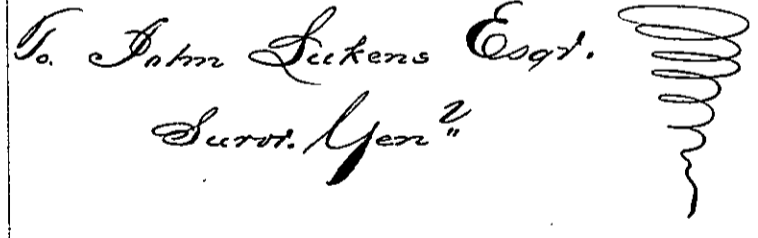 To John Lukens Esqr.
Survr. Genl